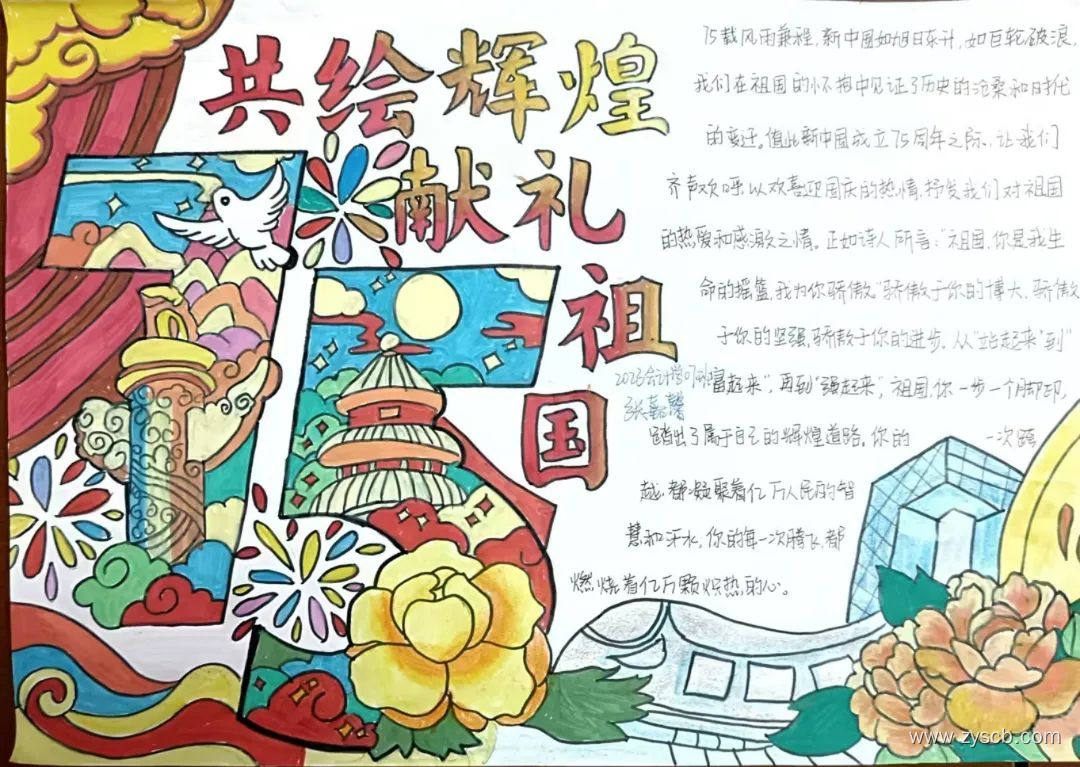 共绘辉煌
献礼
祖
国
75载风雨兼程,新中国如旭日东升,如巨轮破浪,
我们在祖国的怀抱中见证了历史的沧桑和时代
的变迁。值此新中国成立75周年之际,让我们
齐声欢呼,以欢喜迎国庆的热情,抒发我们对祖国
的热爱和感激之情。正如诗人所言:“祖国,你是我生
命的摇篮,我为你骄傲”骄傲于你的博大、骄傲
于你的坚强,骄傲于你的进步。从“站起来”到“
富起来”,再到“强起来”,祖国,你一步一个脚印,
2023会计学
张嘉馨
踏出了属于自己的辉煌道路。你的 一次跨
越,都凝聚着亿万人民的智
慧和汗水,你的每一次腾飞,都
燃烧着亿万颗炽热的心。
75
www.zyscb.com